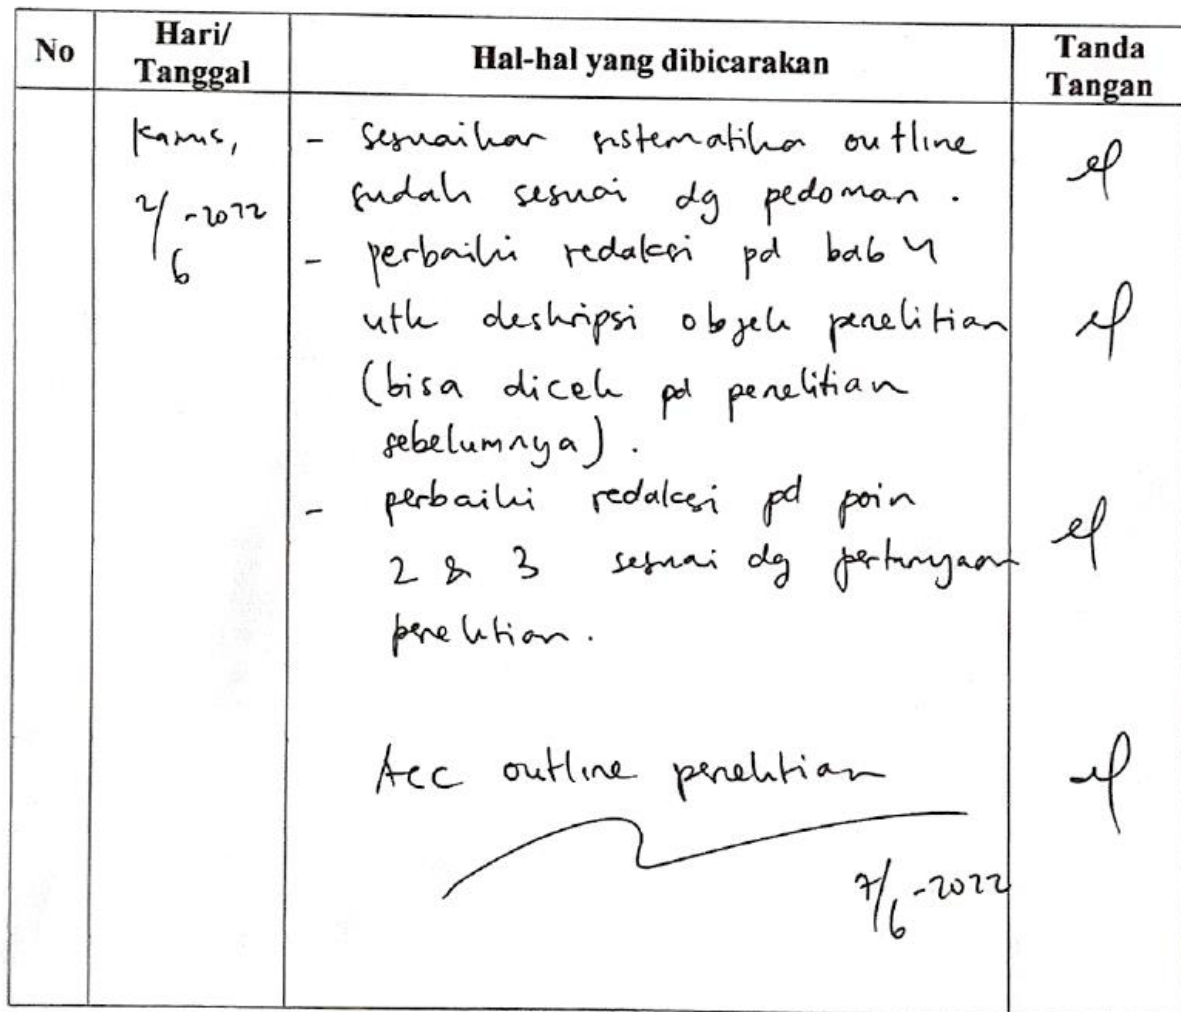 No
Hari/
Tanggal
Hal-hal yang dibicarakan
Tanda
Tangan
Kamis,
2/6-2022
- sesuaikan sistematika outline
sudah sesuai dg pedoman.
- perbaiki redaksi pd bab 4
utk deskripsi objek penelitian
(bisa dicek pd penelitian
sebelumnya).
- perbaiki redaksi pd poin
2 & 3 sesuai dg pertanyaan
penelitian.
Acc outline penelitian
7/6-2022